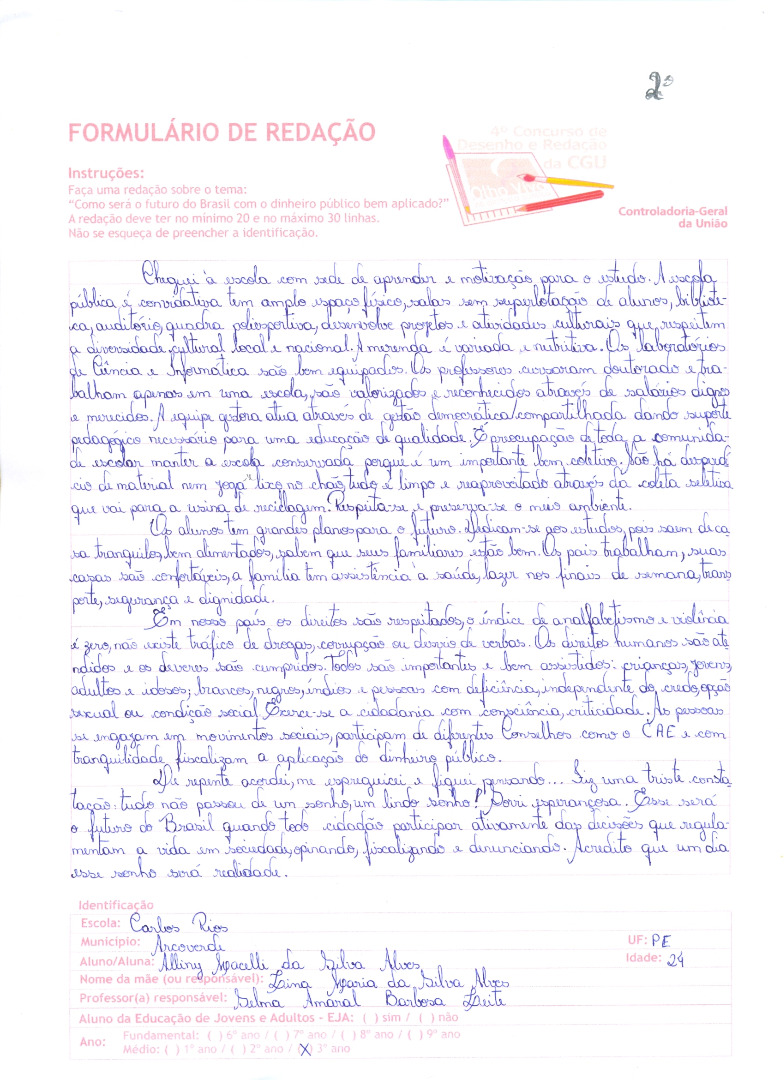 2º
FORMULÁRIO DE REDAÇÃO
4º Concurso de
Desenho e Redação
da CGU
Olho Vivo
Instruções:
Faça uma redação sobre o tema:
“Como será o futuro do Brasil com o dinheiro público bem aplicado?”
A redação deve ter no mínimo 20 e no máximo 30 linhas.
Não se esqueça de preencher a identificação.
Controladoria-Geral
da União
Cheguei à escola com sede de aprender e motivação para o estudo. A escola
pública é convidativa tem amplo espaço físico, salas sem superlotação de alunos, bibliote-
ca, auditório, quadra poliesportiva, desenvolve projetos e atividades culturais que respeitem
a diversidade cultural local e nacional. A merenda é variada e nutritiva. Os laboratórios
de Ciência e Informática são bem equipados. Os professores cursaram doutorado e tra-
balham apenas em uma escola, são valorizados e reconhecidos através de salários dignos
e merecidos. A equipe gestora atua através de gestão democrática/compartilhada dando suporte
pedagógico necessário para uma educação de qualidade. É preocupação de toda a comunida-
de escolar manter a escola conservada porque é um importante bem coletivo. Não há desperdí
cio de material nem joga lixo no chão, tudo é limpo e reaproveitado através da coleta seletiva
que vai para a usina de reciclagem. Respeita-se e preserva-se o meio ambiente.
Os alunos tem grandes planos para o futuro. Dedicam-se aos estudos, pois saem de ca
sa tranquilos, bem alimentados, sabem que seus familiares estão bem. Os pais trabalham, suas
casas são confortáveis, a família tem assistência a saúde, lazer nos finais de semana, trans
porte, segurança e dignidade.
Em nosso país os direitos são respeitados, o índice de analfabetismo e violência
é zero, não existe tráfico de drogas, corrupção ou desvio de verbas. Os direitos humanos são ate
ndidos e os deveres são cumpridos. Todos são importantes e bem assistidos: crianças, jovens,
adultos e idosos; brancos, negros, índios e pessoas com deficiência, independente do credo, opção
sexual ou condição social. Exerce-se a cidadania com consciência, criticidade. As pessoas
se engajam em movimentos sociais, participam de diferentes Conselhos como o CAE e com
tranquilidade fiscalizam a aplicação do dinheiro público.
De repente acordei, me espreguicei e fiquei pensando... Fiz uma triste consta
tação: tudo não passou de um sonho, um lindo sonho! Sorri esperançosa. Esse será
o futuro do Brasil quando todo cidadão participar ativamente das decisões que regula-
mentam a vida em sociedade, opinando, fiscalizando e denunciando. Acredito que um dia
esse sonho será realidade.
Identificação
Escola: Carlos Rios
Município: Arcoverde UF: PE
Aluno/Aluna: Alliny Macelli da Silva Alves Idade: 24
Nome da mãe (ou responsável): Zaina Maria da Silva Alves
Professor(a) responsável: Selma Amaral Barbosa Leite
Aluno da Educação de Jovens e Adultos - EJA: ( ) sim / ( ) não
Ano: Fundamental: ( ) 6º ano / ( ) 7º ano / ( ) 8º ano / ( ) 9º ano
Médio: ( ) 1º ano / ( ) 2º ano / (X) 3º ano